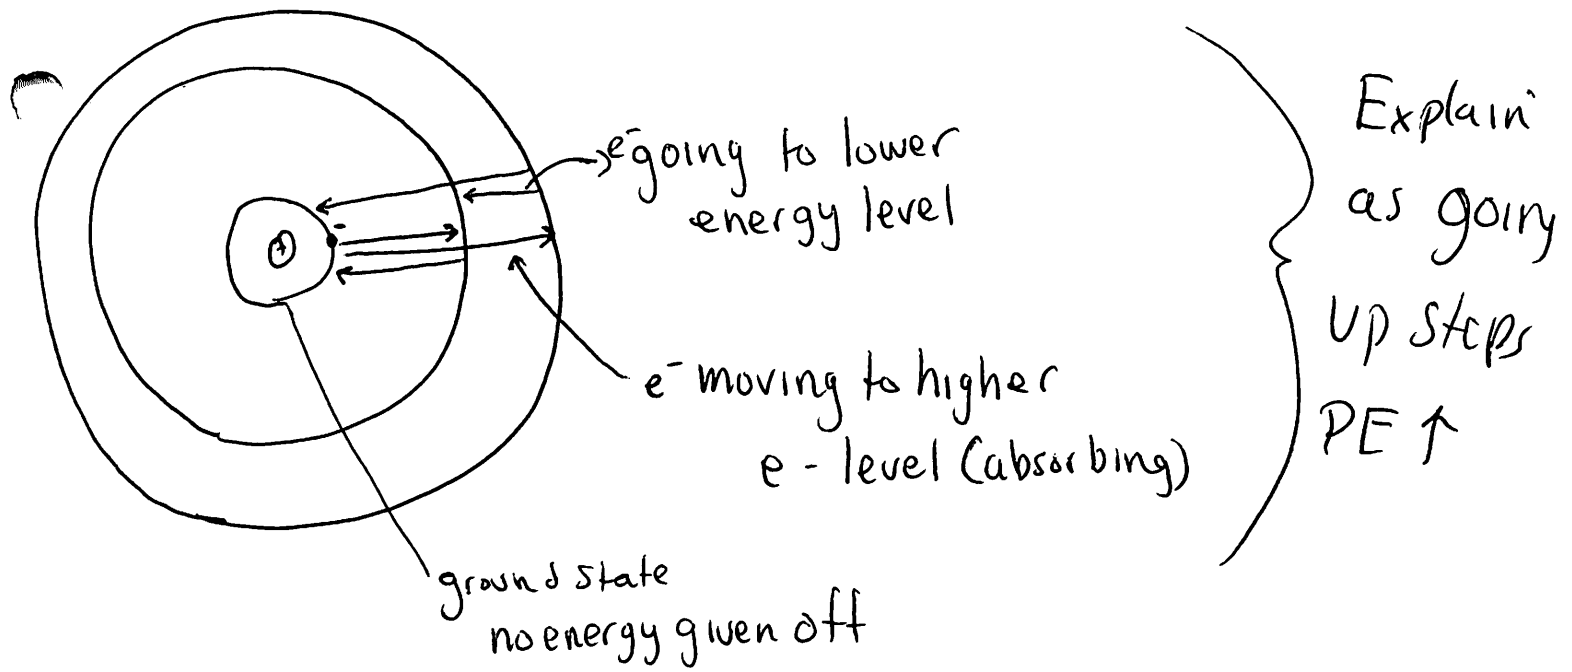 e⁻ going to lower
energy level
e⁻ moving to higher
e - level (absorbing)
ground state
no energy given off
Explain
as going
up steps
PE ↑
+
-